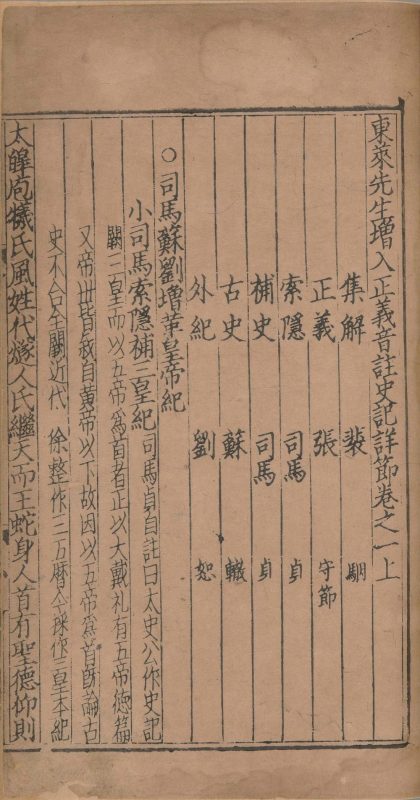 東萊先生増入正義音註史記詳節卷之一上
集解 裴 駰
正義 張 守節
索隱 司馬 貞
補史 司馬 貞
古史 蘇 轍
外紀 劉 恕
○司馬蘇劉増革皇帝紀
小司馬索隱補三皇紀 司馬貞自註曰太史公作史記
闕三皇而以五帝爲首者正以大戴礼有五帝德篇
又帝丗皆叙自黄帝以下故因以五帝爲首旣論古
史不合全闕近代徐整作三五暦今採作三皇本紀
太皥庖犧氏風姓代燧人氏繼天而王蛇身人首有聖德仰則